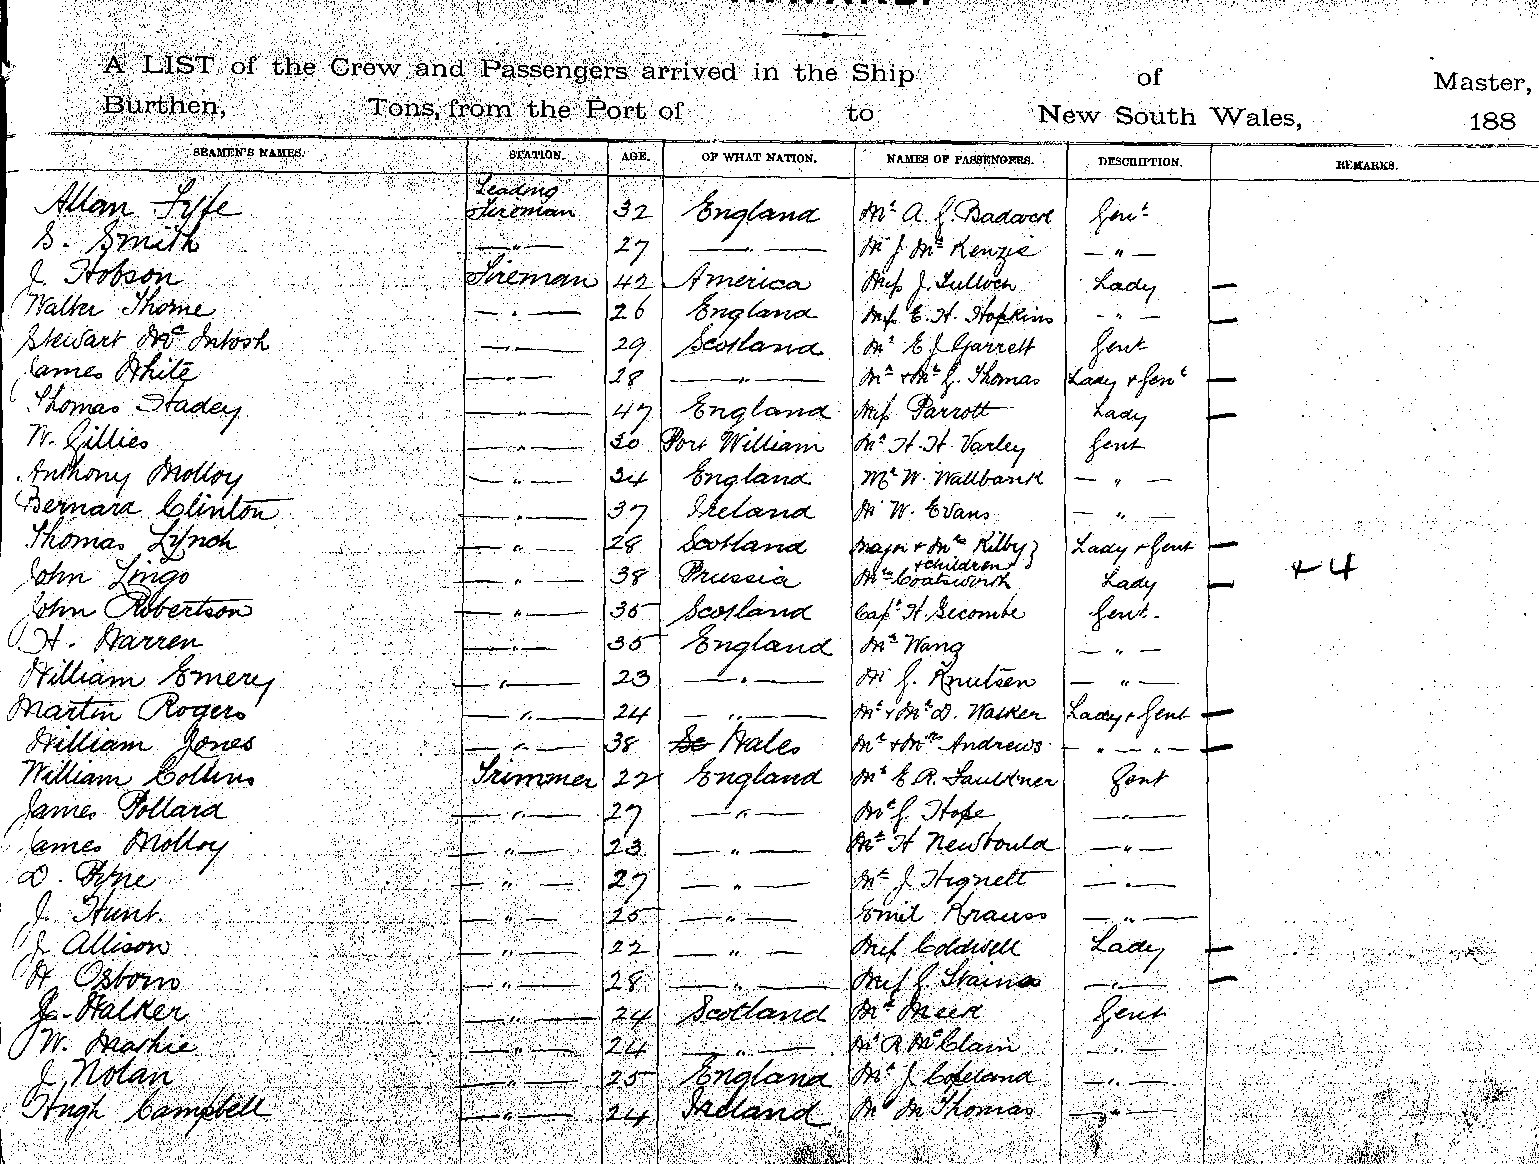 A LIST of the Crew and Passengers arrived in the Ship of Master,
Burthen, Tons, from the Port of to New South Wales, 188
SEAMEN'S NAMES. STATION. AGE. OF WHAT NATION. NAMES OF PASSENGERS. DESCRIPTION. REMARKS.
Allan Fyfe Leading Fireman 32 England Mr A. G. Badcock Gent
S. Smith — " — 27 — " — Mr J McKenzie — " —
J. Hobson Fireman 42 America Miss J. Tulloch Lady —
Walter Thorne — " — 26 England Miss E. H. Hopkins — " — —
Stewart McIntosh — " — 29 Scotland Mr E J Garrett Gent
James White — " — 28 — " — Mr + Mrs G. Thomas Lady + Gent —
Thomas Hadey — " — 47 England Miss Parrott Lady —
W. Gillies — " — 30 Port William Mr H. H. Varley Gent
Anthony Molloy — " — 34 England Mr W. Wallbank — " —
Bernard Clinton — " — 37 Ireland Mr W. Evans — " —
Thomas Lynch — " — 28 Scotland Major + Mrs Kilby } Lady + Gent —
+ children } + 4
John Lingo — " — 38 Prussia Mrs Coatsworth Lady —
John Robertson — " — 35 Scotland Capt H. Secombe Gent.
H. Warren — " — 35 England Mr Wang — " —
William Emery — " — 23 — " — Mr G. Knutsen — " —
Martin Rogers — " — 24 — " — Mr + Mrs D. Walker Lady + Gent —
William Jones — " — 38 Wales Mr + Mrs Andrews — " — " — —
William Collins Trimmer 22 England Mr E. R. Faulkner Gent
James Pollard — " — 27 — " — Mr G. Hope — " —
James Molloy — " — 23 — " — Mr H Newbould — " —
D. Pyne — " — 27 — " — Mr J. Hignett — " —
J. Hunt — " — 25 — " — Emil Krauss — " —
J. Allison — " — 22 — " — Miss Coldwell Lady —
H Osborn — " — 28 — " — Miss G. Stains — " — —
Walker — " — 24 Scotland Mr Meek Gent
W. Mackie — " — 24 — " — Mr R McClain — " —
J. Nolan — " — 25 England Mr J. Copeland — " —
Hugh Campbell — " — 24 Ireland Mr M Thomas — " —